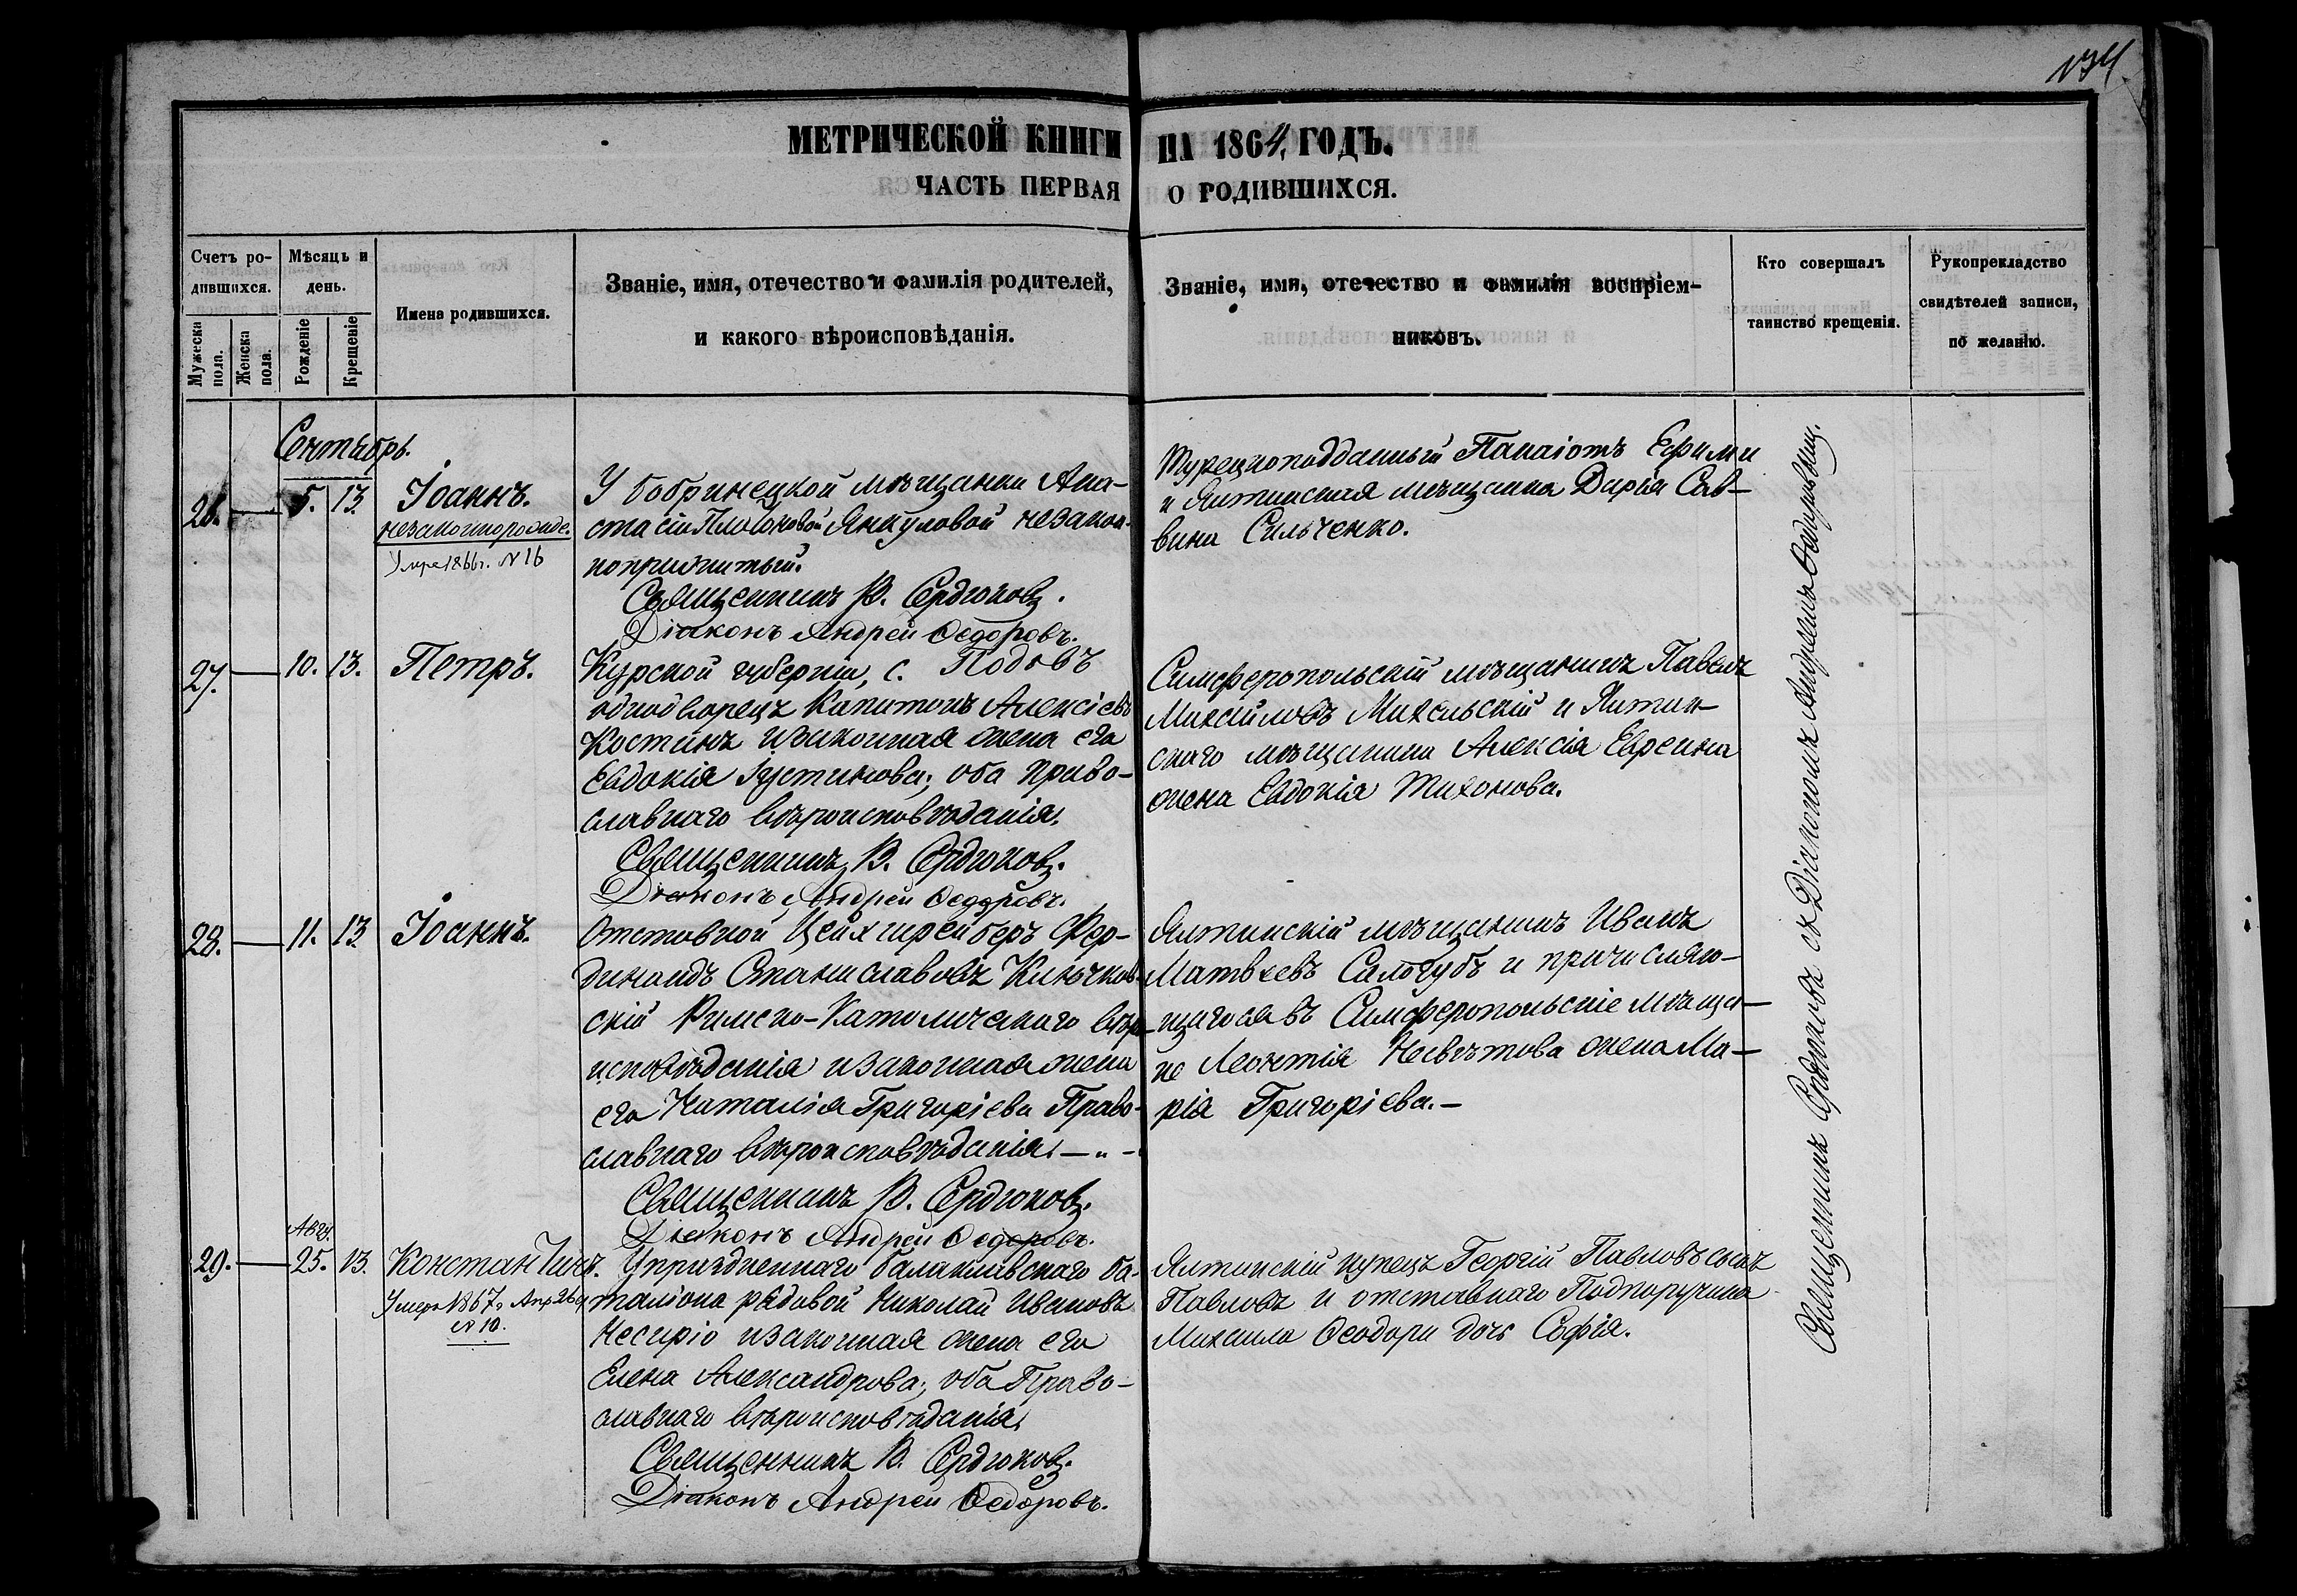 174
МЕТРИЧЕСКОЙ КНИГИ НА 1864 ГОДЪ.
ЧАСТЬ ПЕРВАЯ О РОДИВШИХСЯ.
Счетъ ро-
дившихся.
Мужеска пола.
Женска пола.
Мѣсяцъ и
день.
Рожденіе
Крещеніе
Имена родившихся.
Званіе, имя, отечество и фамилія родителей,
и какого вѣроисповѣданія.
Званіе, имя, отечество и фамилія воспріем-
никовъ.
Кто совершалъ
таинство крещенія.
Рукоприкладство
свидѣтелей записи,
по желанію.
Сентябрь.
26. 5. 13. Іоаннъ.
незаконнорожде.
Умре 1866 г. № 16
У бобринецкой мѣщанки Ана-
стасіи Янкуловой незакон-
ноприжитый.
Священникъ В. Сердюковъ.
Діаконъ Андрей Ѳедоровъ.
Турецкоподданный Панаіотъ Ефими
и Ялтинская мѣщанка Дарія Сав-
вина Сильченко.
27. 10. 13. Петръ.
Курской губерніи, с. Подовъ
однодворецъ Капитонъ Алексіевъ
Костинъ и законная жена его
Евдокія Іустинова; оба Право-
славнаго вѣроисповѣданія.
Священникъ В. Сердюковъ.
Діаконъ Андрей Ѳедоровъ.
Симферопольскій мѣщанинъ Павелъ
Михайловъ Михельскій и Ялтин-
скаго мѣщанина Алексія Евреина
жена Евдокія Тихонова.
28. 11. 13. Іоаннъ.
Отставной Цейхшрейберъ Фер-
динандъ Станиславовъ Ключков-
скій Римско-Католическаго вѣро-
исповѣданія и законная жена
его Наталія Григоріева Право-
славнаго вѣроисповѣданія. — " —
Священникъ В. Сердюковъ.
Діаконъ Андрей Ѳедоровъ.
Ялтинскій мѣщанинъ Иванъ
Матвѣевъ Салогубъ и причисляю-
щагося въ Симферопольскіе мѣща-
не Леонтія Несвѣтова жена Ма-
рія Григоріева.—
Авгу.
29. 25. 13. Константинъ.
Умеръ 1867 г. Апр 26 д
№ 10.
Упраздненнаго балаклавскаго ба-
таліона рядовой Николай Ивановъ
Кесиріо и законная жена его
Елена Александрова; оба Право-
славнаго вѣроисповѣданія.
Священникъ В. Сердюковъ.
Діаконъ Андрей Ѳедоровъ.
Ялтинскій купецъ Георгій Павловъ сынъ
Павловъ и отставнаго Подпоручика
Михаила Ѳеодори дочь Софія.
Священникъ Сердюковъ съ Діакономъ Андреемъ Ѳедоровымъ.